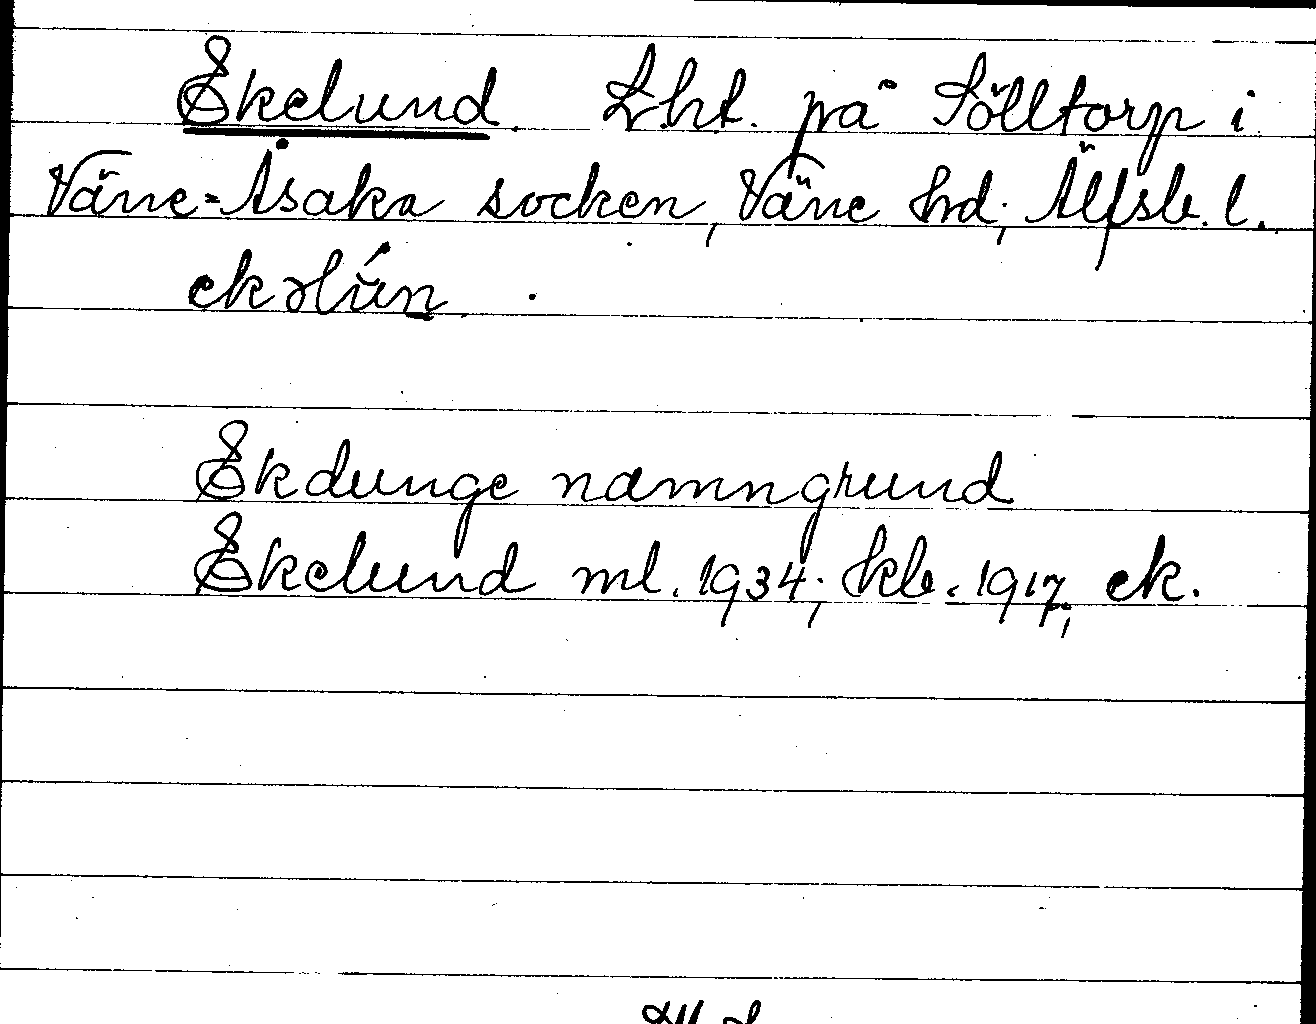 Ekelund. Lht. på Sölltorp i
Väne-Åsaka socken, Väne hrd; Älfsb. l.
Ekdunge namngrund
Ekelund ml. 1934; kb. 1917; ek.